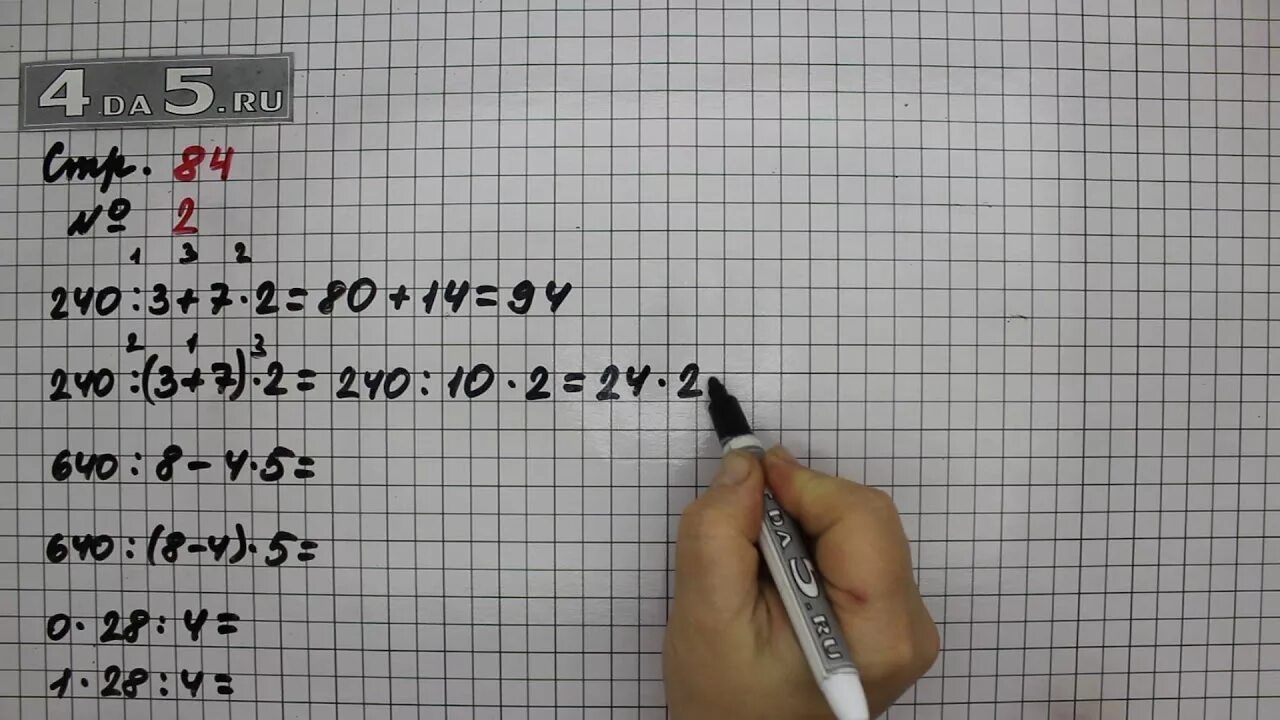 4 DA 5.RU
Стр. 84
№ 2
1 3 2
240:3+7·2=80+14=94
2 1 3
240:(3+7)·2=240:10·2=24·2
640:8-4·5=
640:(8-4)·5=
0·28:4=
1·28:4=
DA 5.RU